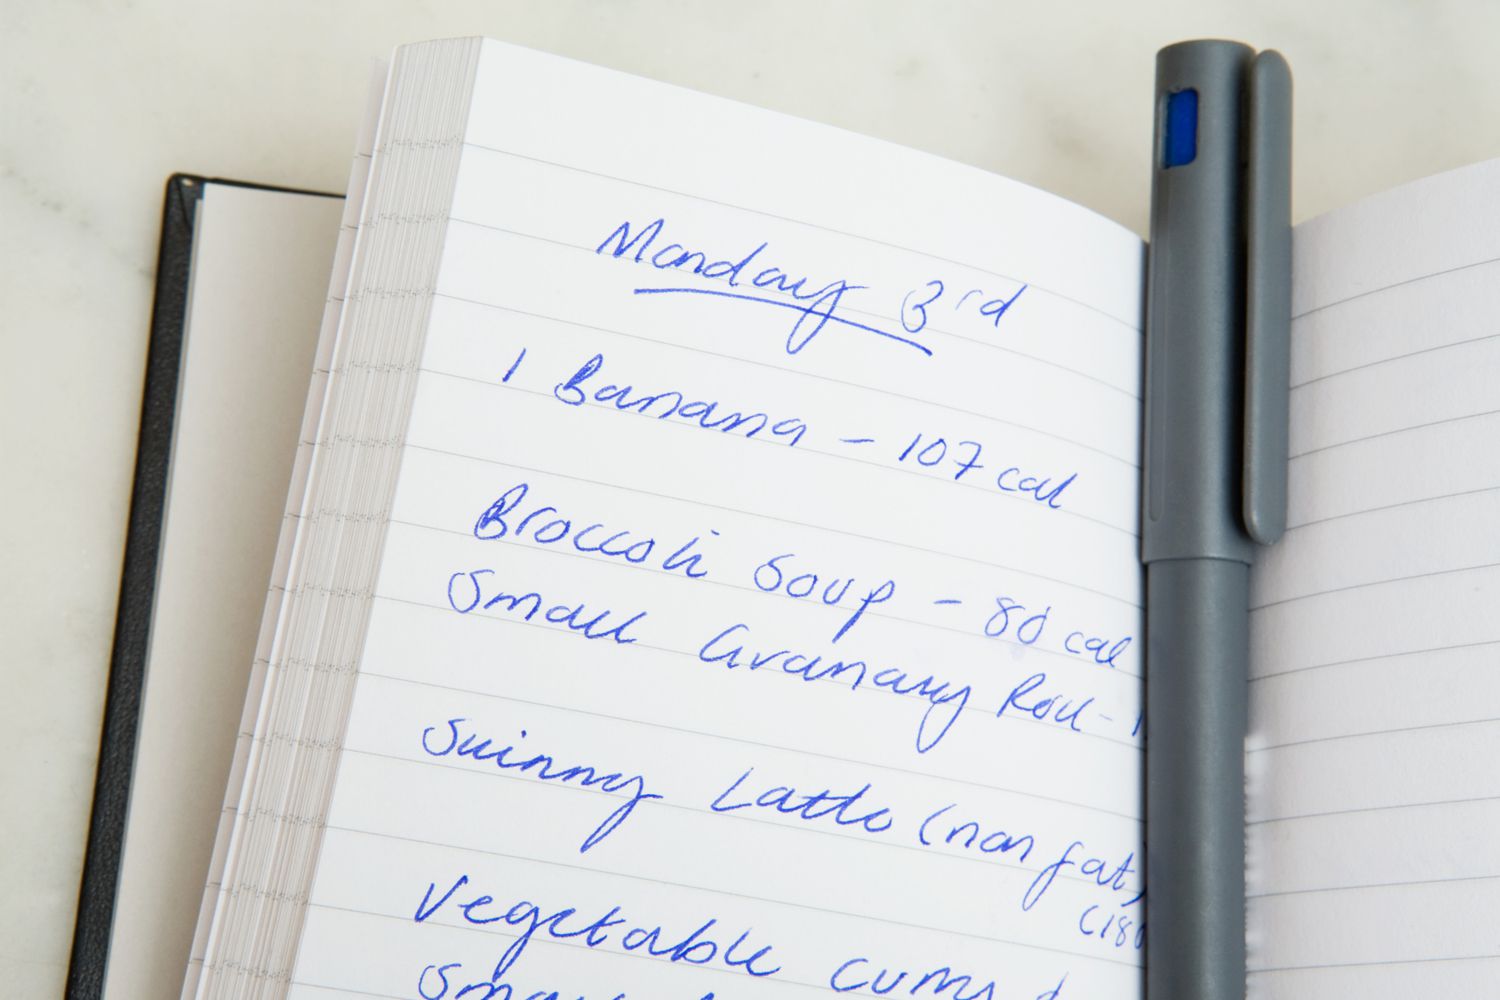 Monday 3rd
1 Banana - 107 cal
Broccoli Soup - 80 cal
Small Granary Roll -
Skinny Latte (non fat)
(180
Vegetable Curry
Small